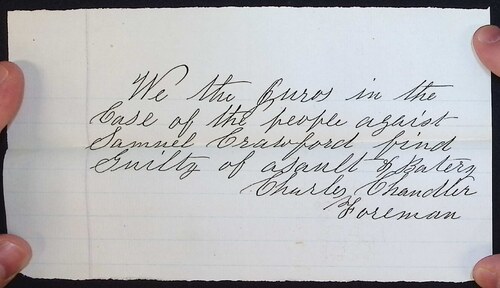 We the Juros in the
Case of the people agaist
Samuel Crawford find
Guilty of asault & Batery
Charles Chandler
Foreman